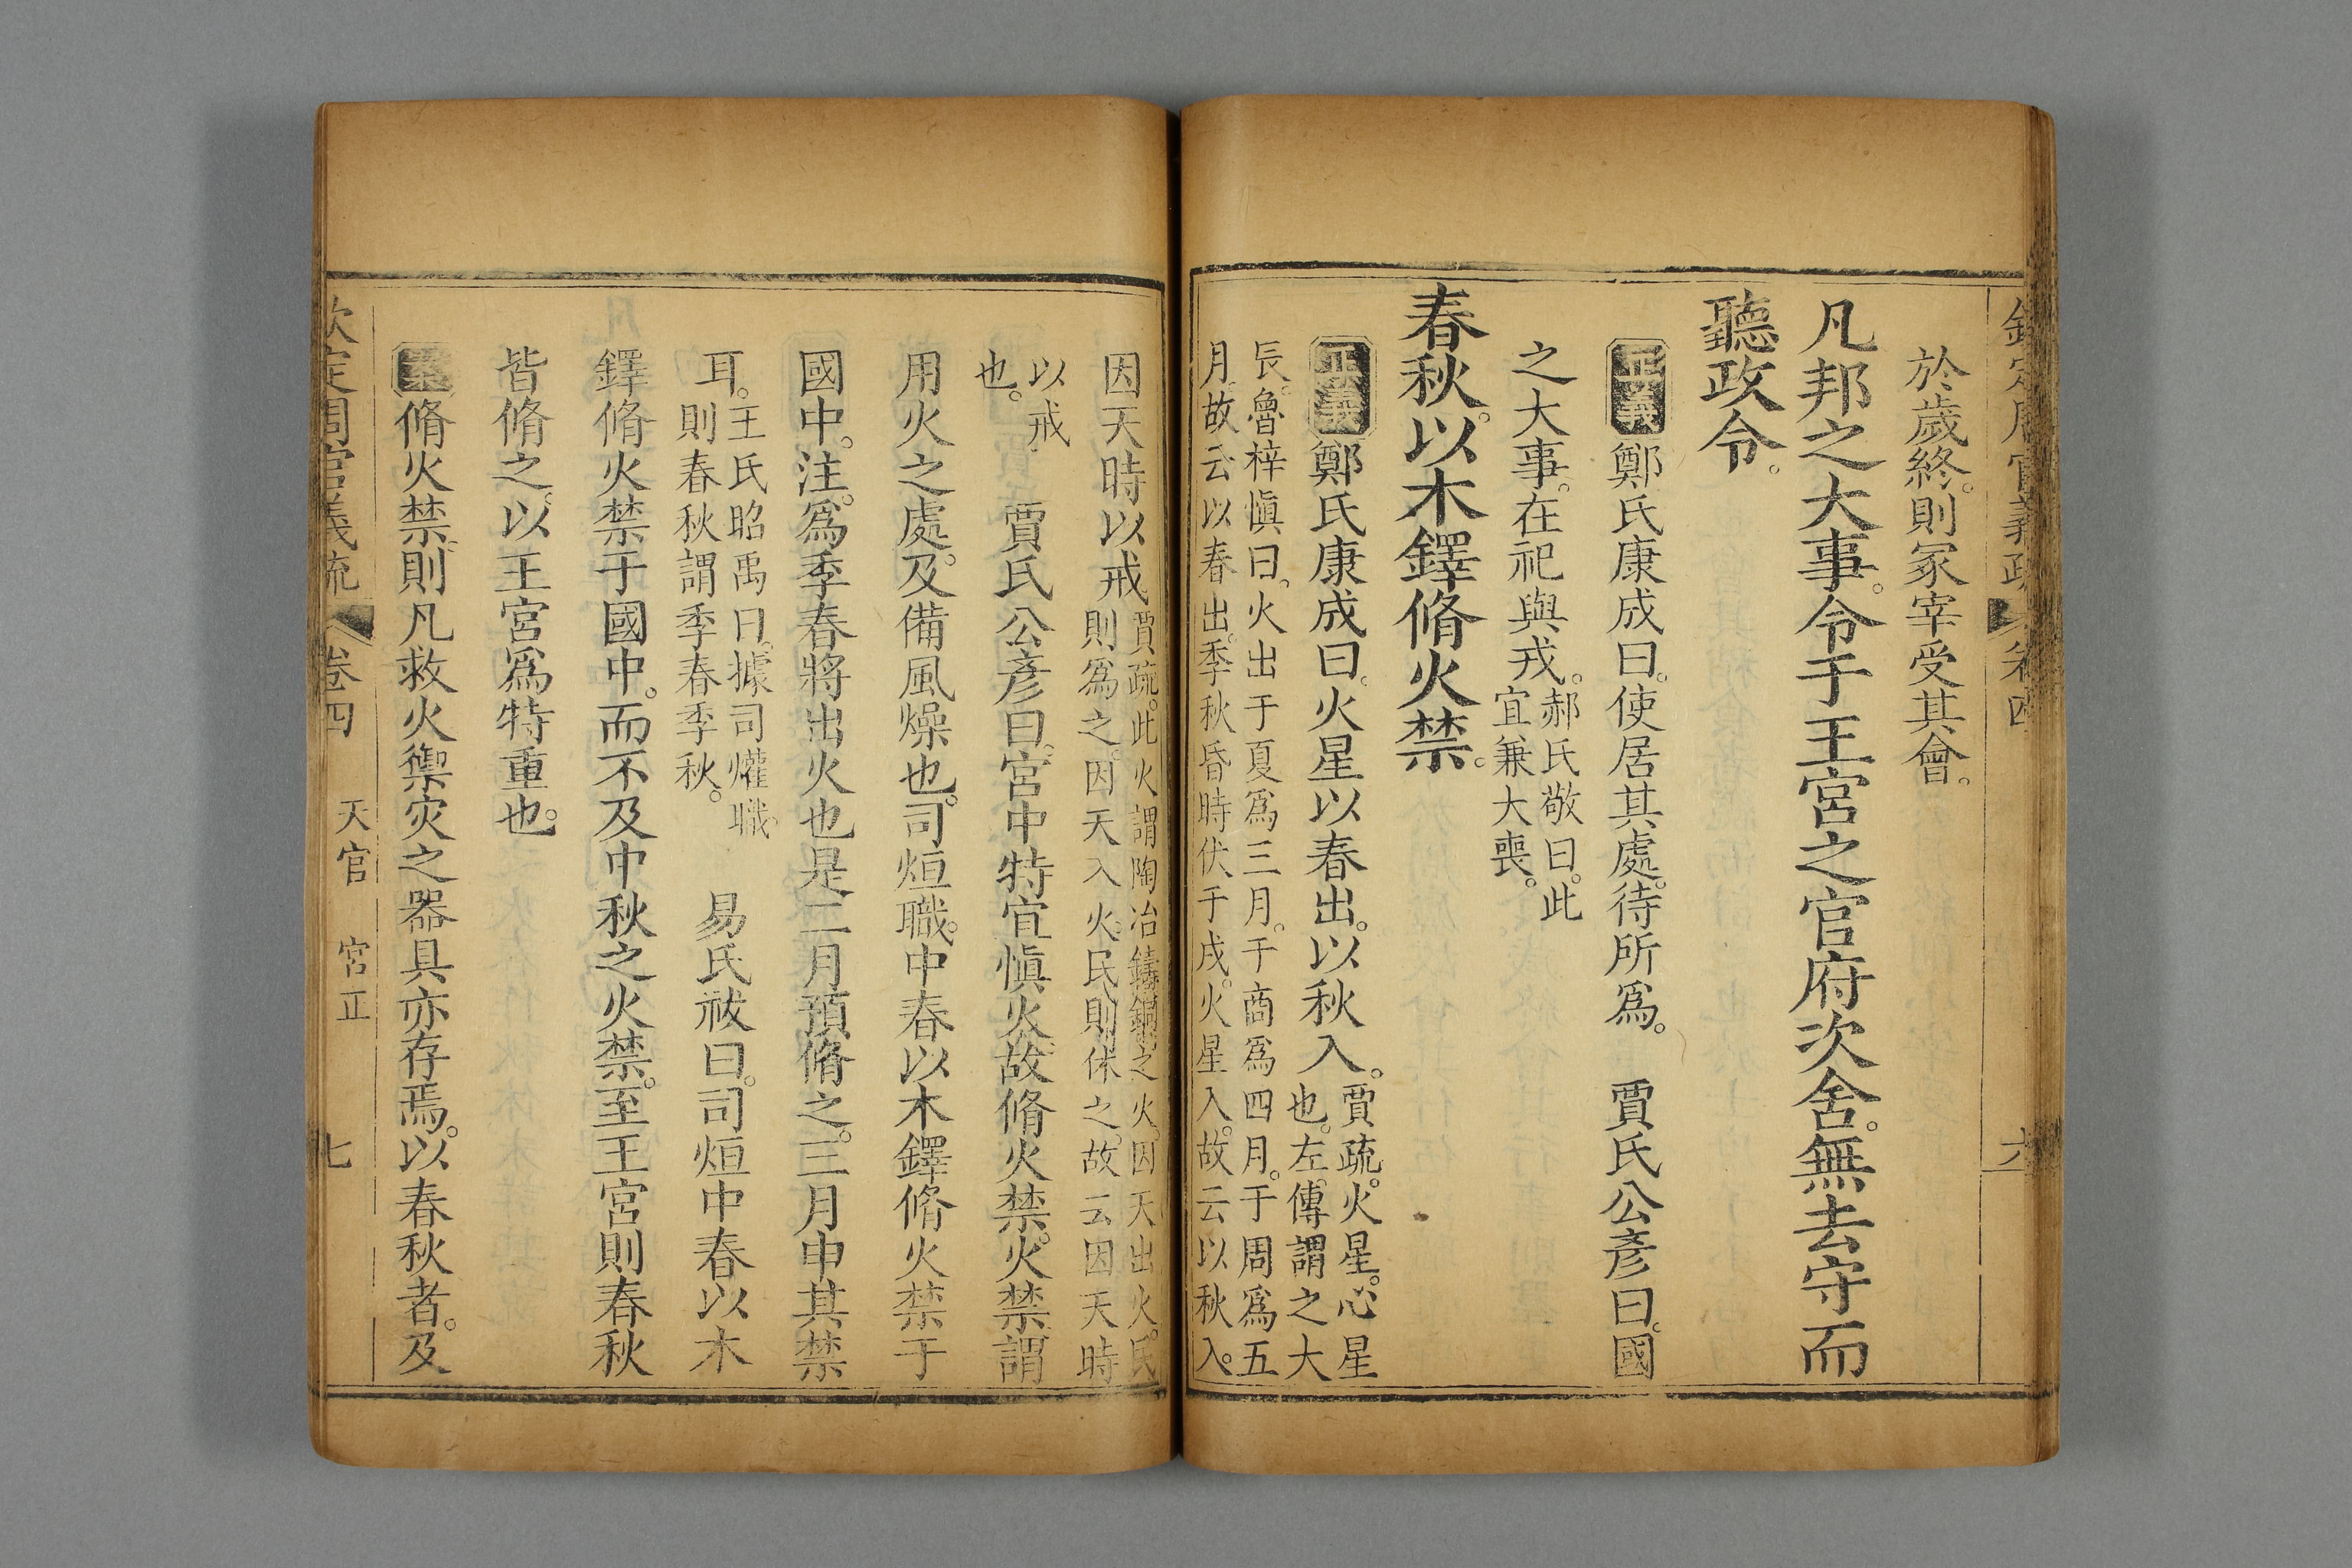 於歲終。則冢宰受其會。
凡邦之大事。令于王宮之官府次舍。無去守而
聽政令。
正義鄭氏康成曰。使居其處。待所爲。 賈氏公彥曰。國
之大事。在祀與戎。郝氏敬曰。此
宜兼大喪。
春秋。以木鐸脩火禁。
正義鄭氏康成曰。火星以春出。以秋入。賈疏。火星。心星
也。左傳謂之大
辰。魯梓愼曰。火出于夏爲三月。于商爲四月。于周爲五
月。故云以春出。季秋昏時伏于戌。火星入。故云以秋入。
因天時以戒賈疏。此火謂陶冶鑄銅之火。因天出火。民
則爲之。因天入火。民則休之。故云因天時
以戒
也。 賈氏公彥曰。宮中特宜愼火。故脩火禁。火禁謂
用火之處。及備風燥也。司烜職。中春以木鐸脩火禁于
國中。注。爲季春將出火也是二月預脩之。三月中其禁
耳。王氏昭禹曰。據司爟職。
則春秋謂季春季秋。 易氏祓曰。司烜中春以木
鐸脩火禁于國中。而不及中秋之火禁。至王宮則春秋
皆脩之。以王宮爲特重也。
案脩火禁。則凡救火禦灾之器具亦存焉。以春秋者。及
欽定周官義疏 卷四 天官 宮正 七